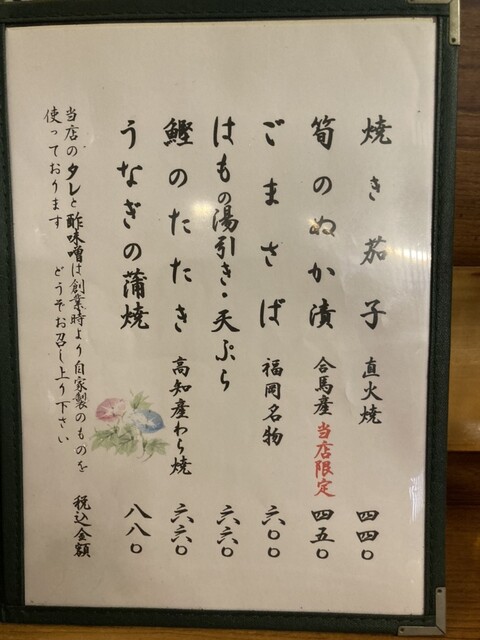 焼き茄子 直火焼 四四〇
筍のぬか漬 合馬産 当店限定 四五〇
ごまさば 福岡名物 六〇〇
はもの湯引き・天ぷら 六六〇
鰹のたたき 高知産わら焼 六六〇
うなぎの蒲焼 八八〇
当店のタレと酢味噌は創業時より自家製のものを
使っております どうぞお召し上り下さい
税込金額